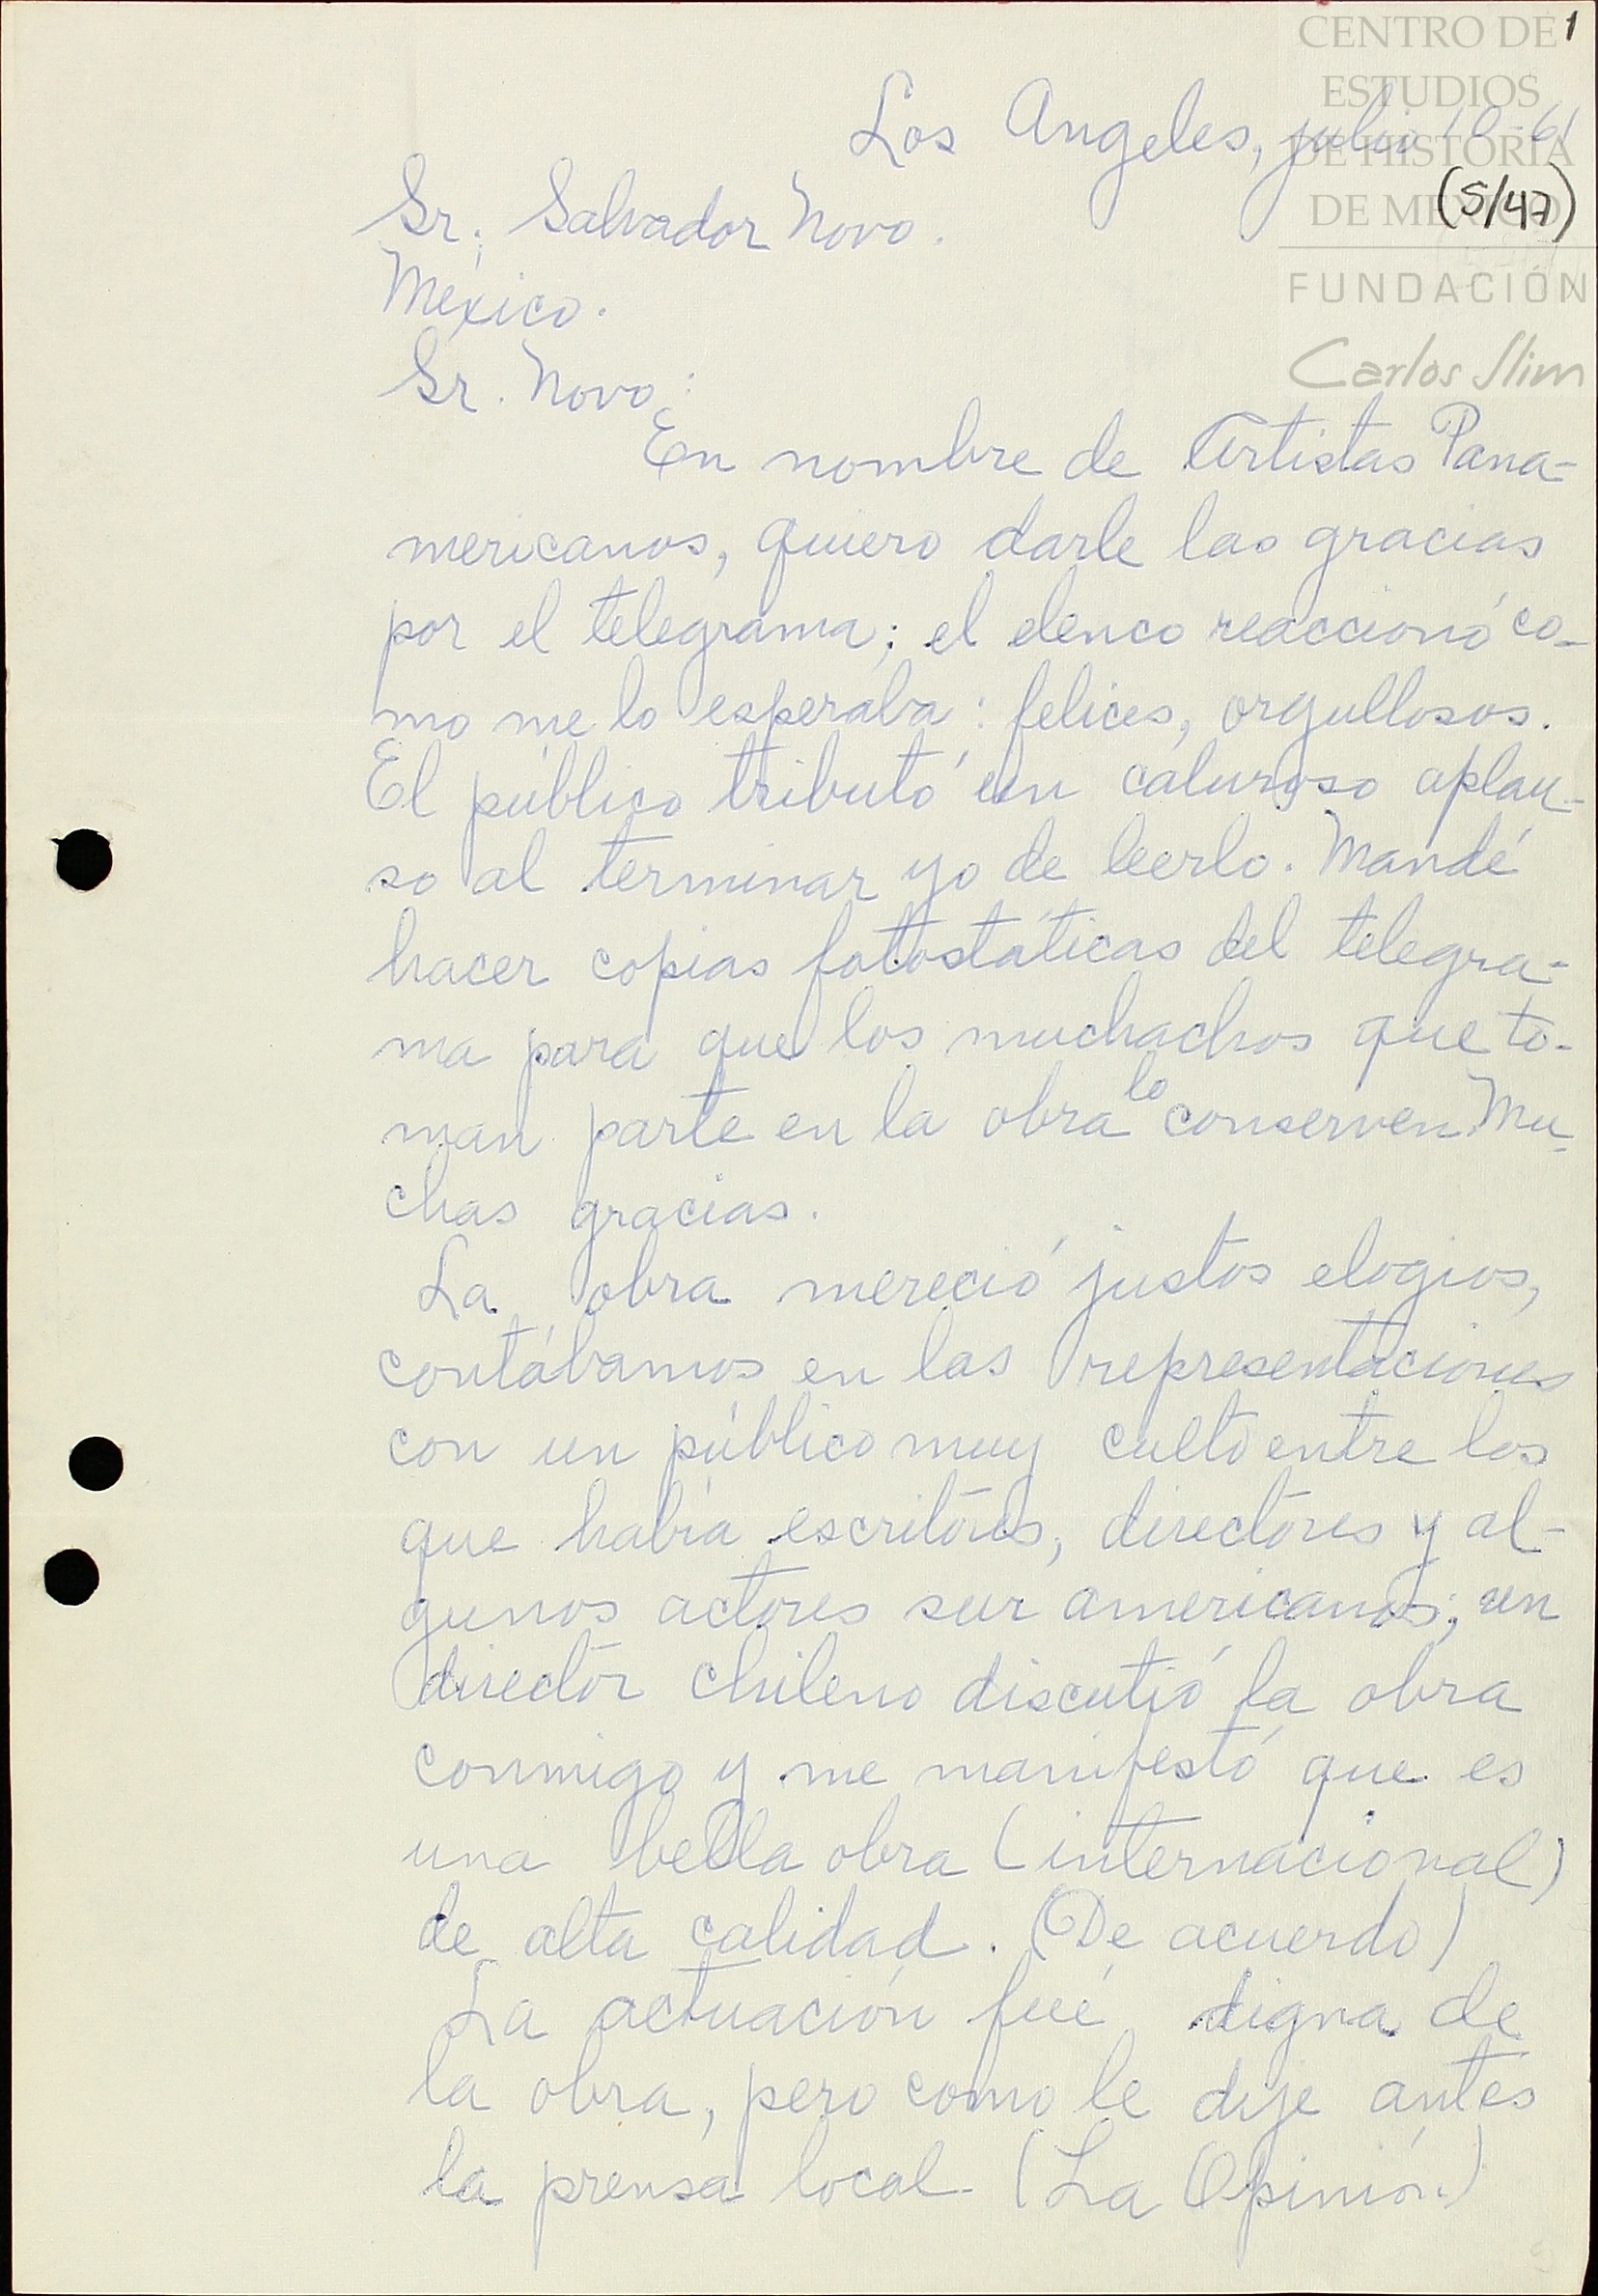 CENTRO DE 1
ESTUDIOS
DE HISTORIA
DE MÉXICO
(5/47)
FUNDACIÓN
Carlos Slim
Los Angeles, julio 10-61
Sr. Salvador Novo.
México.
Sr. Novo:
En nombre de Artistas Pana-
mericanos, quiero darle las gracias
por el telegrama; el elenco reaccionó co-
mo me lo esperaba: felices, orgullosos.
El público tributó un caluroso aplau-
so al terminar yo de leerlo. Mandé
hacer copias fotostáticas del telegra-
ma para que los muchachos que to-
man parte en la obra lo conserven. Mu-
chas gracias.
La obra mereció justos elogios,
contábamos en las representaciones
con un público muy culto entre los
que había escritores, directores y al-
gunos actores sur americanos; un
director chileno discutió la obra
conmigo y me manifestó que es
una bella obra (internacional)
de alta calidad. (De acuerdo)
La actuación fué digna de
la obra, pero como le dije antes
la prensa local (La Opinión)